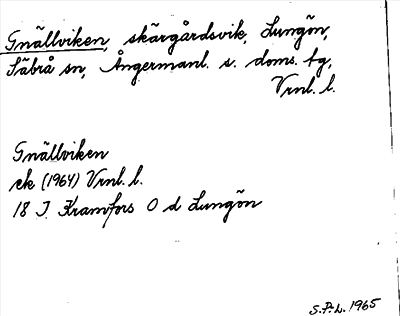 Gnällviken, skärgårdsvik, Lungön,
Säbrå sn, Ångermanl. s. doms. tg,
Vrnl. l.
Gnällviken
ek (1964) Vrnl. l.
18 J. Kramfors O d Lungön
S.P.L. 1965